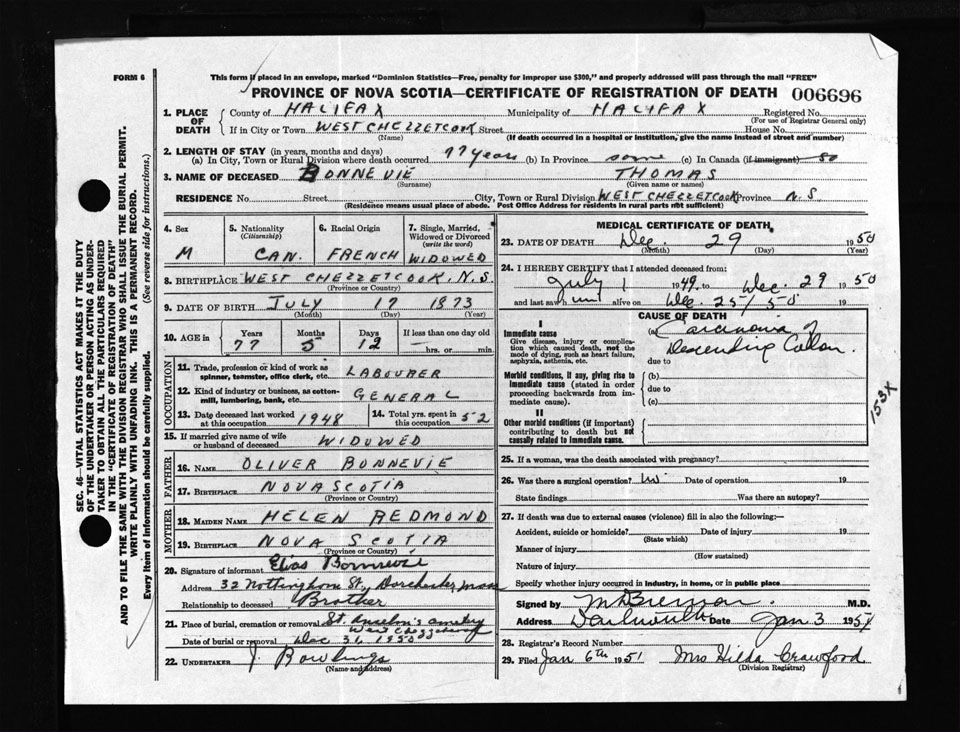 FORM 6
This form if placed in an envelope, marked "Dominion Statistics—Free, penalty for improper use $300," and properly addressed will pass through the mail "FREE"
PROVINCE OF NOVA SCOTIA—CERTIFICATE OF REGISTRATION OF DEATH 006696
1. PLACE OF DEATH County of HALIFAX Municipality of HALYFAX Registered No.
(For use of Registrar General only)
If in City or Town WEST CHEZZETCOOK Street House No.
(Name) (If death occurred in a hospital or institution, give the name instead of street and number)
2. LENGTH OF STAY (in years, months and days)
(a) In City, Town or Rural Division where death occurred 77 years (b) In Province same (c) In Canada (if immigrant) so
3. NAME OF DECEASED BONNEVIE THOMAS
(Surname) (Given name or names)
RESIDENCE No. Street City, Town or Rural Division WEST CHEZZETCOOK Province N.S.
(Residence means usual place of abode. Post Office Address for residents in rural parts not sufficient)
4. Sex 5. Nationality (Citizenship) 6. Racial Origin 7. Single, Married, Widowed or Divorced (write the word)
M CAN. FRENCH WIDOWED
8. BIRTHPLACE WEST CHEZZETCOOK, N.S.
(Province or Country)
9. DATE OF BIRTH JULY 17 1873
(Month) (Day) (Year)
10. AGE in Years Months Days If less than one day old
77 5 12 — hrs. or min.
OCCUPATION
11. Trade, profession or kind of work as spinner, teamster, office clerk, etc. LABOURER
12. Kind of industry or business, as cotton-mill, lumbering, bank, etc. GENERAL
13. Date deceased last worked at this occupation 1948 14. Total yrs. spent in this occupation 52
15. If married give name of wife or husband of deceased WIDOWED
FATHER
16. NAME OLIVER BONNEVIE
17. BIRTHPLACE NOVA SCOTIA
(Province or Country)
MOTHER
18. MAIDEN NAME HELEN REDMOND
19. BIRTHPLACE NOVA SCOTIA
(Province or Country)
20. Signature of informant Elias Bonnevie
Address 32 Nottingham St., Dorchester, Mass
Relationship to deceased Brother
21. Place of burial, cremation or removal St. Anselm's cemetery
West Chezzetcook
Date of burial or removal Dec 31 1950
22. UNDERTAKER J. Rowlings
(Name and address)
MEDICAL CERTIFICATE OF DEATH
23. DATE OF DEATH Dec. 29 1950
(Month) (Day) (Year)
24. I HEREBY CERTIFY that I attended deceased from:
July 1 1949 to Dec. 29 1950
and last saw him alive on Dec. 25/50 19
CAUSE OF DEATH
I
Immediate cause
Give disease, injury or complication which caused death, not the mode of dying, such as heart failure, asphyxia, asthenia, etc.
(a) Carcinoma of
Descending Collon.
due to
Morbid conditions, if any, giving rise to immediate cause (stated in order proceeding backwards from immediate cause).
(b)
due to
(c)
II
Other morbid conditions (if important) contributing to death but not causally related to immediate cause.
153X
25. If a woman, was the death associated with pregnancy?
26. Was there a surgical operation? Date of operation 19
State findings Was there an autopsy?
27. If death was due to external causes (violence) fill in also the following:—
Accident, suicide or homicide? Date of injury 19
(State which)
Manner of injury
(How sustained)
Nature of injury
Specify whether injury occurred in industry, in home, or in public place
Signed by M.D.
Address Dartmouth Date Jan. 3 1951
28. Registrar's Record Number
29. Filed Jan 6th 1951 Mrs Hilda Crawford
(Division Registrar)
SEC. 46—VITAL STATISTICS ACT MAKES IT THE DUTY
OF THE UNDERTAKER OR PERSON ACTING AS UNDER-
TAKER TO OBTAIN ALL THE PARTICULARS REQUIRED
IN THE "CERTIFICATE OF REGISTRATION OF DEATH"
AND TO FILE THE SAME WITH THE DIVISION REGISTRAR WHO SHALL ISSUE THE BURIAL PERMIT.
WRITE PLAINLY WITH UNFADING INK. THIS IS A PERMANENT RECORD.
Every item of information should be carefully supplied. (See reverse side for instructions.)